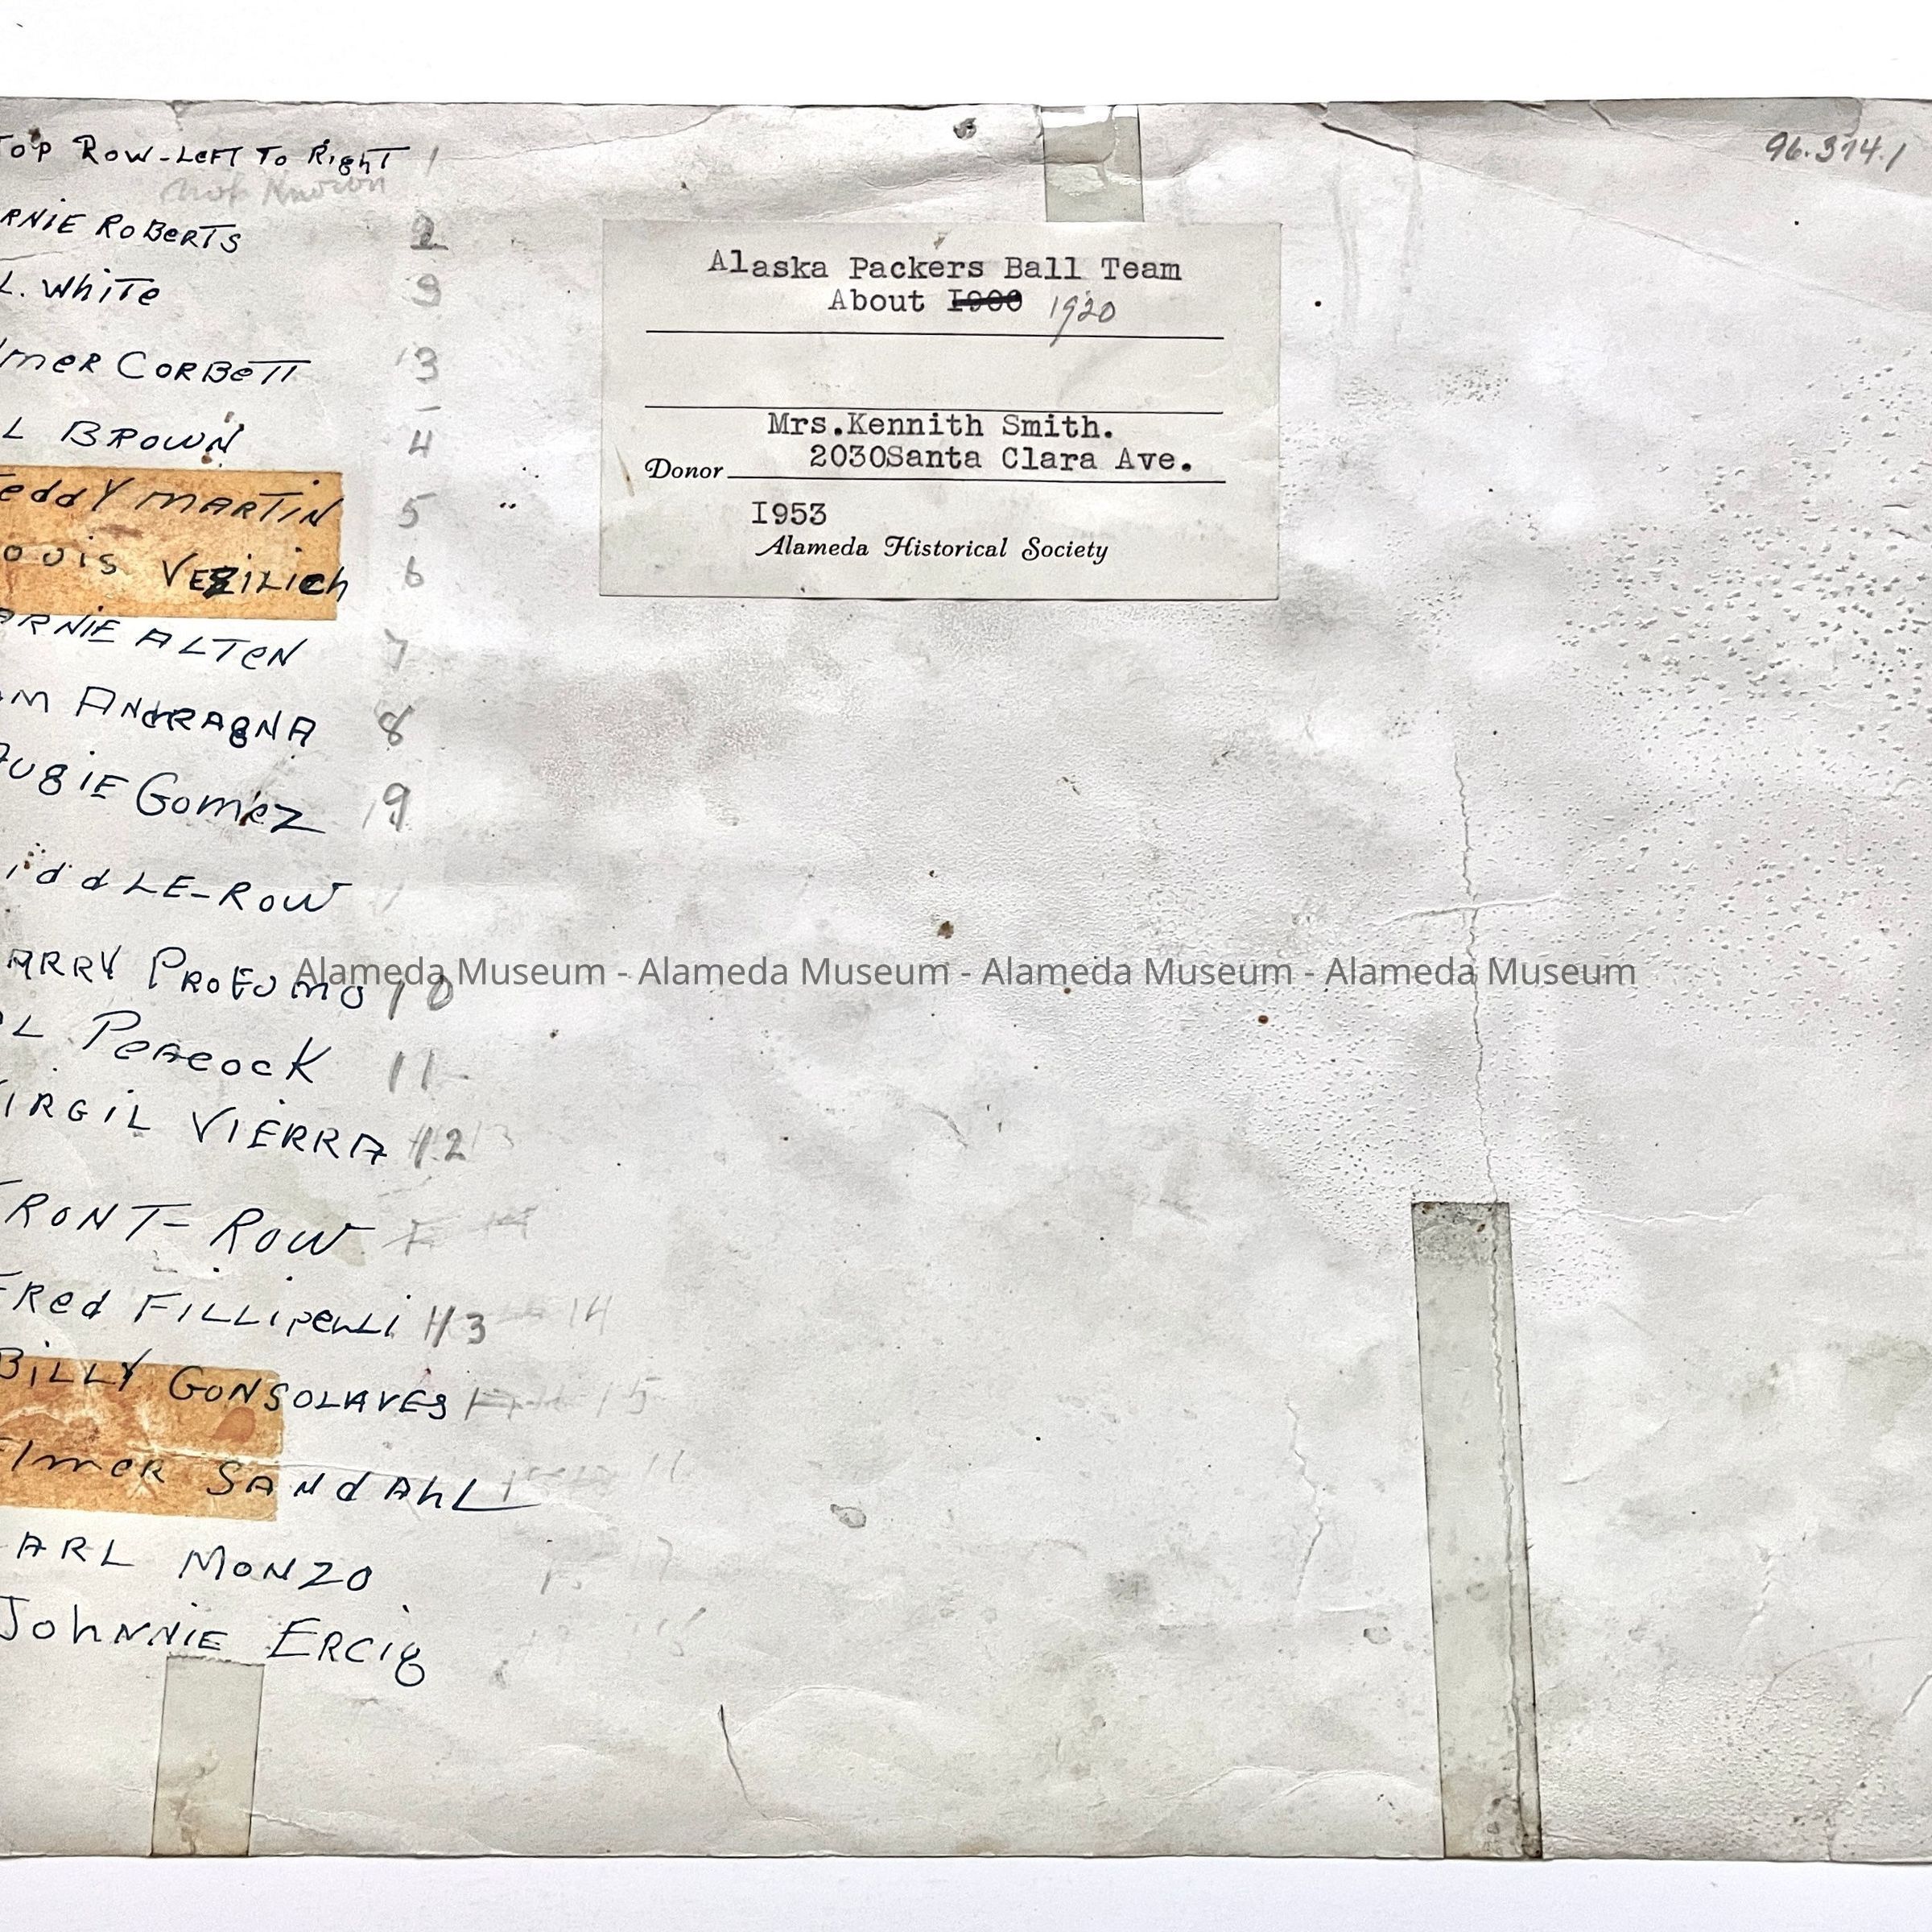 Top Row-Left To Right 1
Not Known
RNIE ROBERTS 2
L. White 3
lmer Corbett 3
L BROWN 4
Teddy MARTIN 5
ouis VEZILICH 6
ARNIE ALTEN 7
AM ANDRAGNA 8
AUGIE Gomez 9
iddLE-ROW
ARRY PROFUMO 10
L Peacock 11
VIRGIL VIERRA 12 13
FRONT-ROW
FRed FILLIPELLI 13 14
BILLY GONSOLAVES 15
Elmer SANDAHL 16
ARL MONZO 17
Johnnie ERCIG
96.374.1
Alaska Packers Ball Team
About I900 1920
Mrs.Kennith Smith.
2030Santa Clara Ave.
Donor
I953
Alameda Historical Society
Alameda Museum - Alameda Museum - Alameda Museum - Alameda Museum